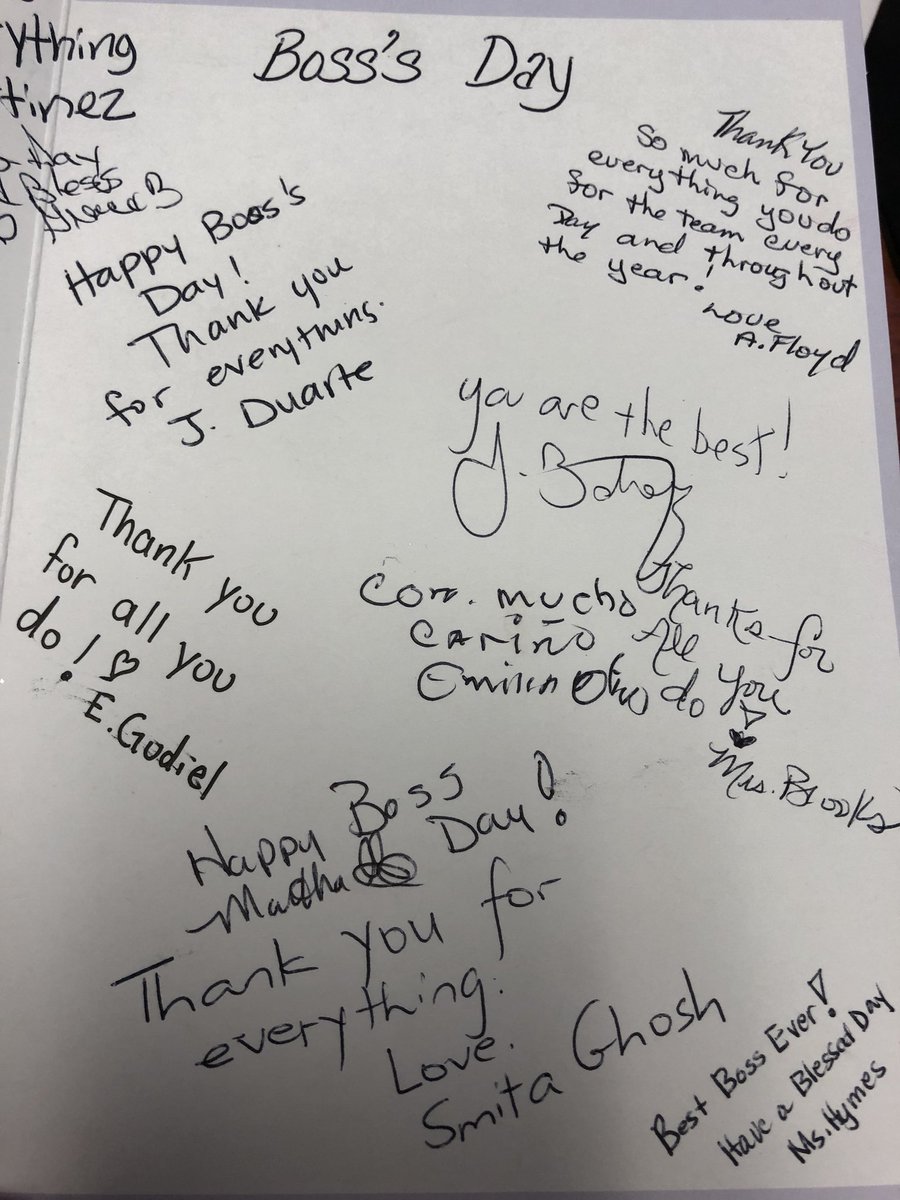 ything
tinez
Day
Bless
Boss's Day
Thank You
So much for
everything you do
for the team every
Day and throughout
the year!
Love
A. Floyd
Happy Boss's
Day!
Thank you
for everything.
J. Duarte
you are the best!
Thank you
for all you
do!
E. Godiel
Con mucho
cariño
Thanks for
All
you
do
Mrs. Brooks
Happy Boss
Day!
Martha
Thank you for
everything.
Love.
Smita Ghosh
Best Boss Ever!
Have a Blessed Day
Ms. Hymes